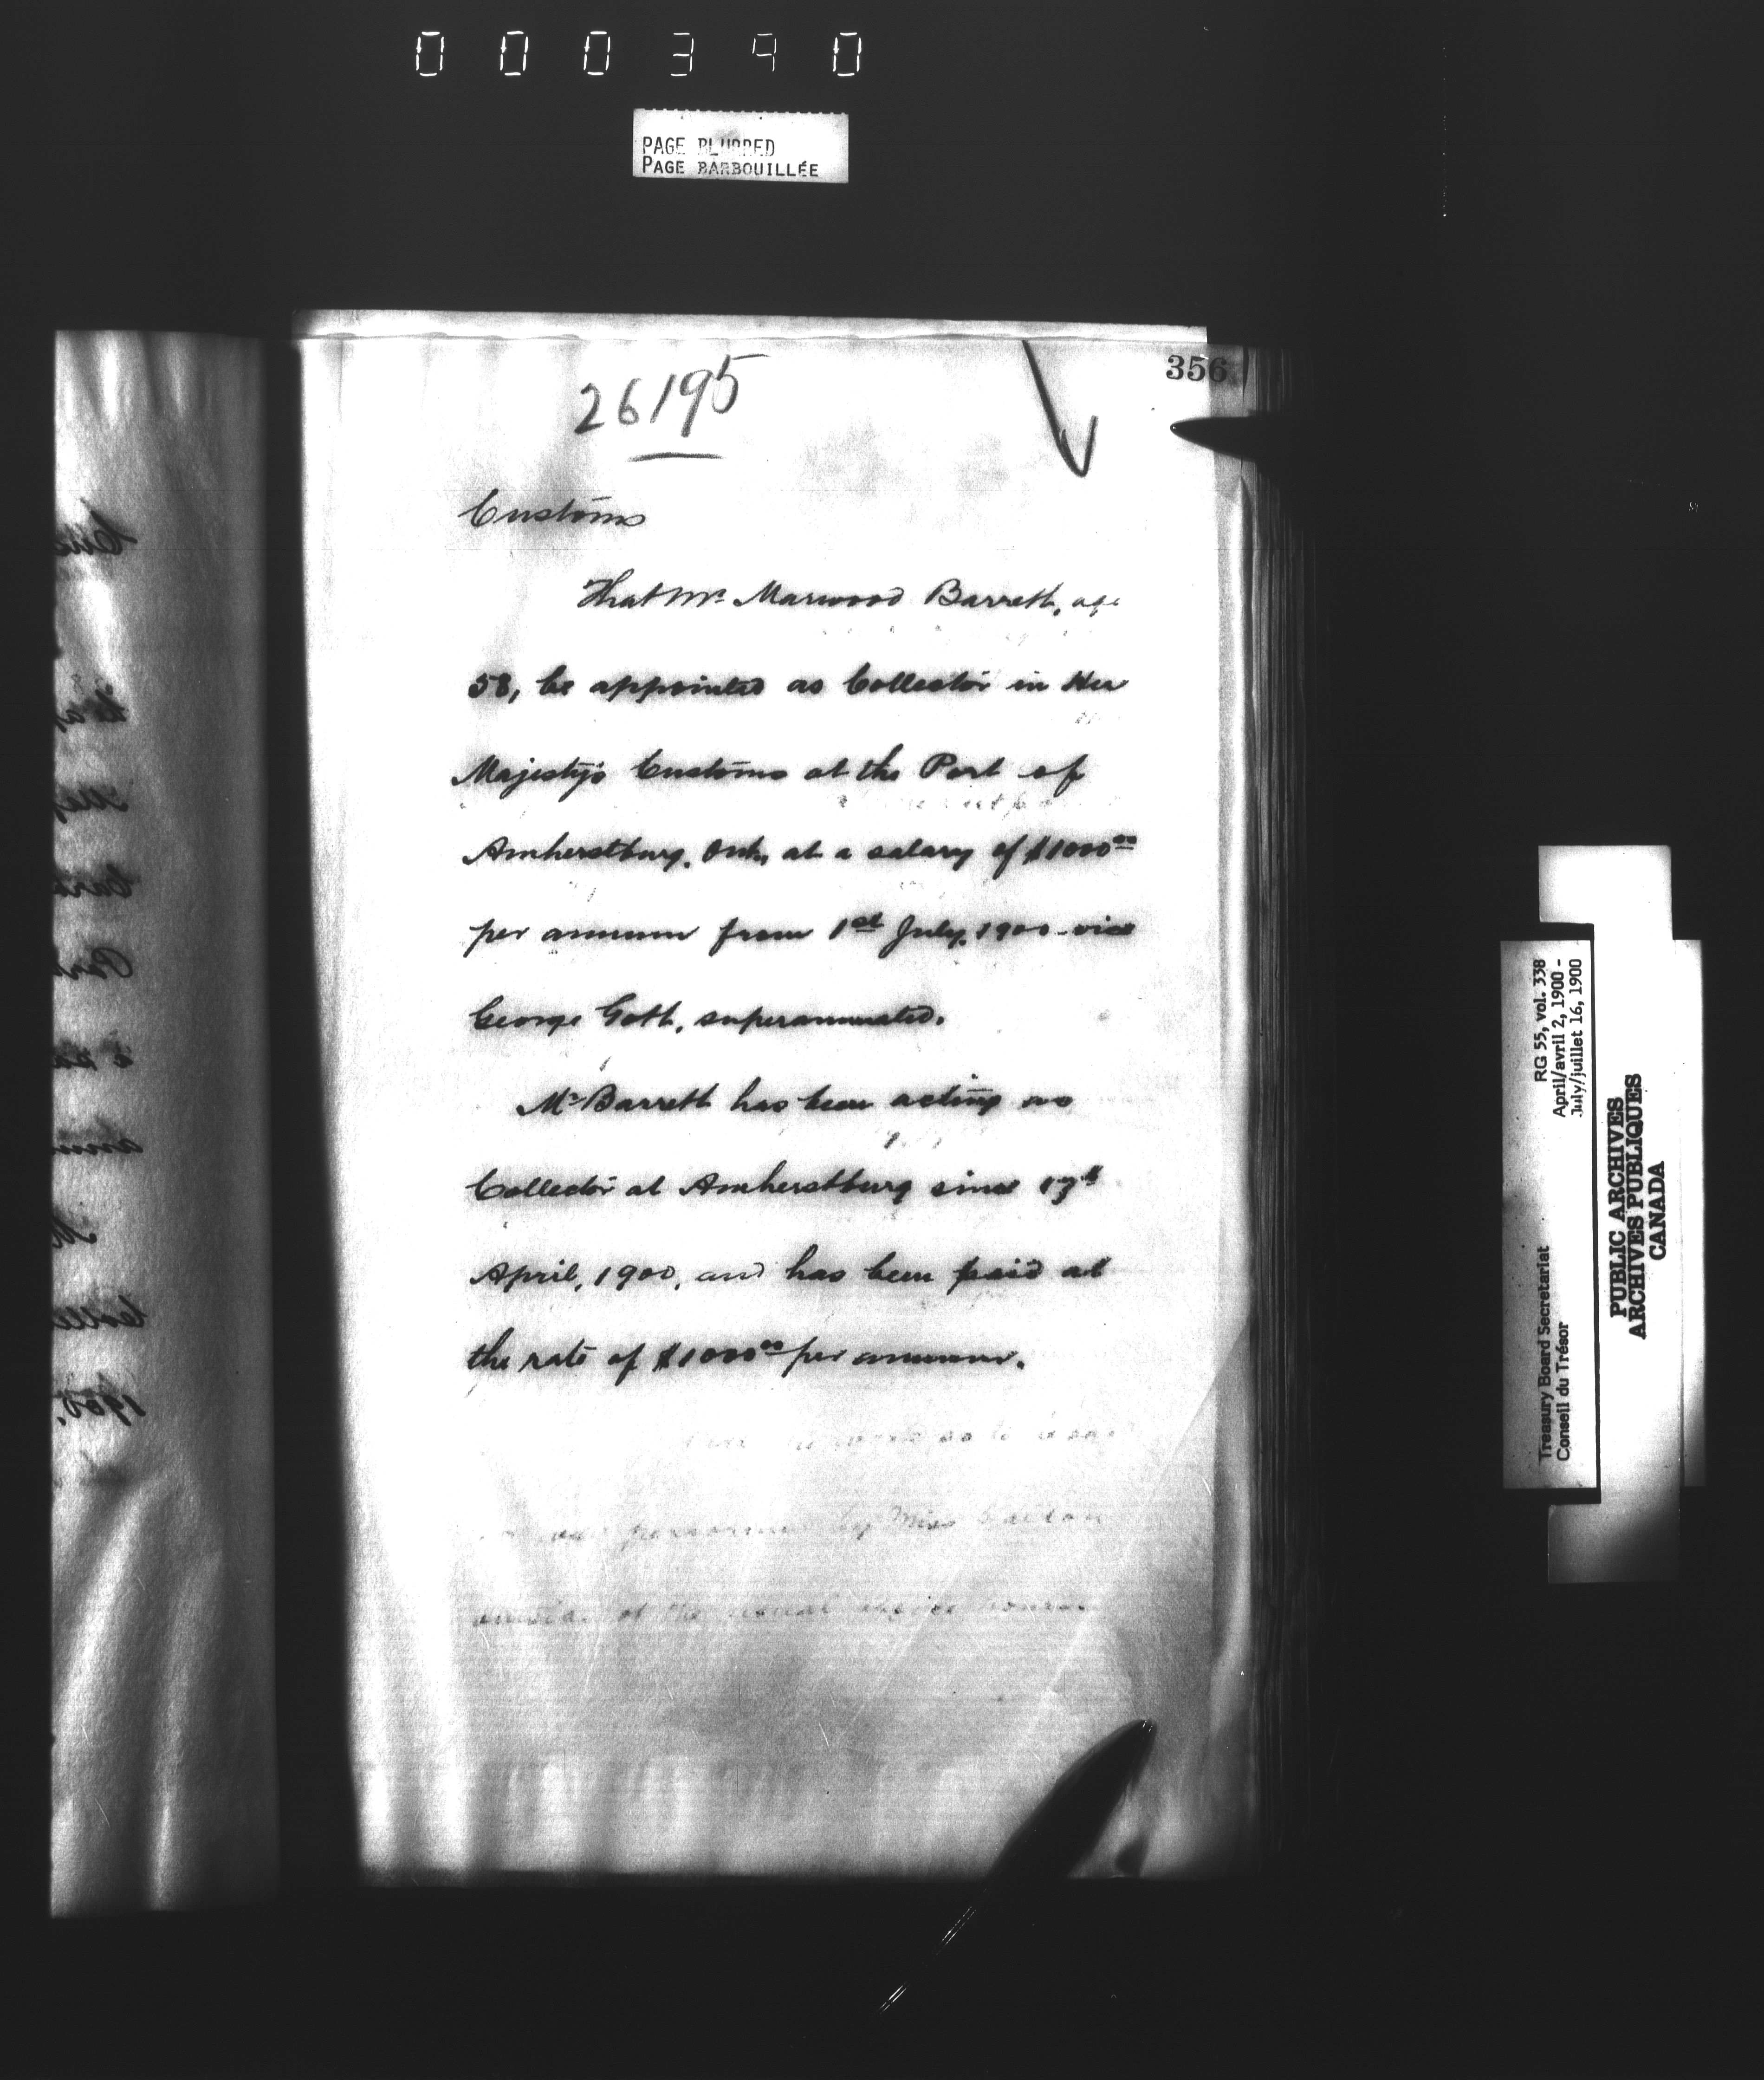 000390
PAGE BLURRED
PAGE BARBOUILLÉE
356
26195
Customs
That Mr. Marwood Barrett, age
58, be appointed as Collector in Her
Majesty's Customs at the Port of
Amherstburg, Ont., at a salary of $1000.00
per annum from 1st July, 1900 vice
George Gott, superannuated.
Mr. Barrett has been acting as
Collector at Amherstburg since 17th
April, 1900, and has been paid at
the rate of $1000.00 per annum.
by Miss
of the usual office hours.
RG 55, vol. 338
April/avril 2, 1900 -
July/juillet 16, 1900
Treasury Board Secretariat
Conseil du Trésor
PUBLIC ARCHIVES
ARCHIVES PUBLIQUES
CANADA